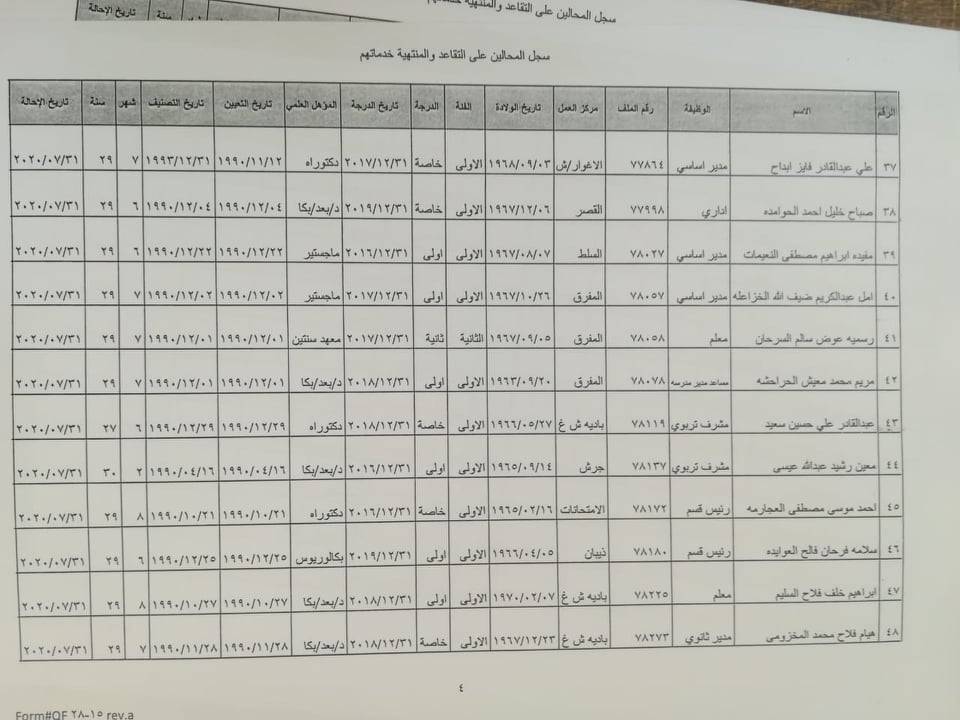 سجل المحالين على التقاعد والمنتهية خدماتهم
تاريخ الإحالة
سنة
سجل المحالين على التقاعد والمنتهية خدماتهم
الرقم الاسم الوظيفة رقم الملف مركز العمل تاريخ الولادة الفئة الدرجة تاريخ الدرجة المؤهل العلمي تاريخ التعيين تاريخ التصنيف شهر سنة تاريخ الإحالة
٣٧ علي عبدالقادر فايز ابداح مدير اساسي ٧٧٨٦٤ الاغوار/ش ١٩٦٨/٠٩/٠٣ الاولى خاصة ٢٠١٧/١٢/٣١ دكتوراه ١٩٩٠/١١/١٢ ١٩٩٣/١٢/٣١ ٧ ٢٩ ٢٠٢٠/٠٧/٣١
٣٨ صباح خليل احمد الحوامده اداري ٧٧٩٩٨ القصر ١٩٦٧/١٢/٠٦ الاولى خاصة ٢٠١٩/١٢/٣١ د/بعد/بكا ١٩٩٠/١٢/٠٤ ١٩٩٠/١٢/٠٤ ٦ ٢٩ ٢٠٢٠/٠٧/٣١
٣٩ مفيده ابراهيم مصطفى النعيمات مدير اساسي ٧٨٠٢٧ السلط ١٩٦٧/٠٨/٠٧ الاولى اولى ٢٠١٦/١٢/٣١ ماجستير ١٩٩٠/١٢/٢٢ ١٩٩٠/١٢/٢٢ ٦ ٢٩ ٢٠٢٠/٠٧/٣١
٤٠ امل عبدالكريم ضيف الله الخزاعله مدير اساسي ٧٨٠٥٧ المفرق ١٩٦٧/١٠/٢٦ الاولى اولى ٢٠١٧/١٢/٣١ ماجستير ١٩٩٠/١٢/٠٢ ١٩٩٠/١٢/٠٢ ٧ ٢٩ ٢٠٢٠/٠٧/٣١
٤١ رسميه عوض سالم السرحان معلم ٧٨٠٥٨ المفرق ١٩٦٧/٠٩/٠٥ الثانية ثانية ٢٠١٧/١٢/٣١ معهد سنتين ١٩٩٠/١٢/٠١ ١٩٩٠/١٢/٠١ ٧ ٢٩ ٢٠٢٠/٠٧/٣١
٤٢ مريم محمد معيش الحراحشه مساعد مدير مدرسه ٧٨٠٧٨ المفرق ١٩٦٣/٠٩/٢٠ الاولى اولى ٢٠١٨/١٢/٣١ د/بعد/بكا ١٩٩٠/١٢/٠١ ١٩٩٠/١٢/٠١ ٧ ٢٩ ٢٠٢٠/٠٧/٣١
٤٣ عبدالقادر علي حسين سعيد مشرف تربوي ٧٨١١٩ باديه ش غ ١٩٦٦/٠٥/٢٧ الاولى خاصة ٢٠١٨/١٢/٣١ دكتوراه ١٩٩٠/١٢/٢٩ ١٩٩٠/١٢/٢٩ ٦ ٢٧ ٢٠٢٠/٠٧/٣١
٤٤ معين رشيد عبدالله عيسى مشرف تربوي ٧٨١٣٧ جرش ١٩٦٥/٠٩/١٤ الاولى اولى ٢٠١٦/١٢/٣١ د/بعد/بكا ١٩٩٠/٠٤/١٦ ١٩٩٠/٠٤/١٦ ٢ ٣٠ ٢٠٢٠/٠٧/٣١
٤٥ احمد موسى مصطفى العجارمه رئيس قسم ٧٨١٧٢ الامتحانات ١٩٦٥/٠٢/١٦ الاولى خاصة ٢٠١٦/١٢/٣١ دكتوراه ١٩٩٠/١٠/٢١ ١٩٩٠/١٠/٢١ ٨ ٢٩ ٢٠٢٠/٠٧/٣١
٤٦ سلامه فرحان فالح العوايده رئيس قسم ٧٨١٨٠ ذيبان ١٩٦٦/٠٤/٠٥ الاولى اولى ٢٠١٩/١٢/٣١ بكالوريوس ١٩٩٠/١٢/٢٥ ١٩٩٠/١٢/٢٥ ٦ ٢٩ ٢٠٢٠/٠٧/٣١
٤٧ ابراهيم خلف فلاح السليم معلم ٧٨٢٢٥ باديه ش غ ١٩٧٠/٠٢/٠٧ الاولى اولى ٢٠١٨/١٢/٣١ د/بعد/بكا ١٩٩٠/١٠/٢٧ ١٩٩٠/١٠/٢٧ ٨ ٢٩ ٢٠٢٠/٠٧/٣١
٤٨ هيام فلاح محمد المخزومي مدير ثانوي ٧٨٢٧٣ باديه ش غ ١٩٦٧/١٢/٢٣ الاولى خاصة ٢٠١٨/١٢/٣١ د/بعد/بكا ١٩٩٠/١١/٢٨ ١٩٩٠/١١/٢٨ ٧ ٢٩ ٢٠٢٠/٠٧/٣١
٤
Form#QF ٢٨-١٥ rev.a